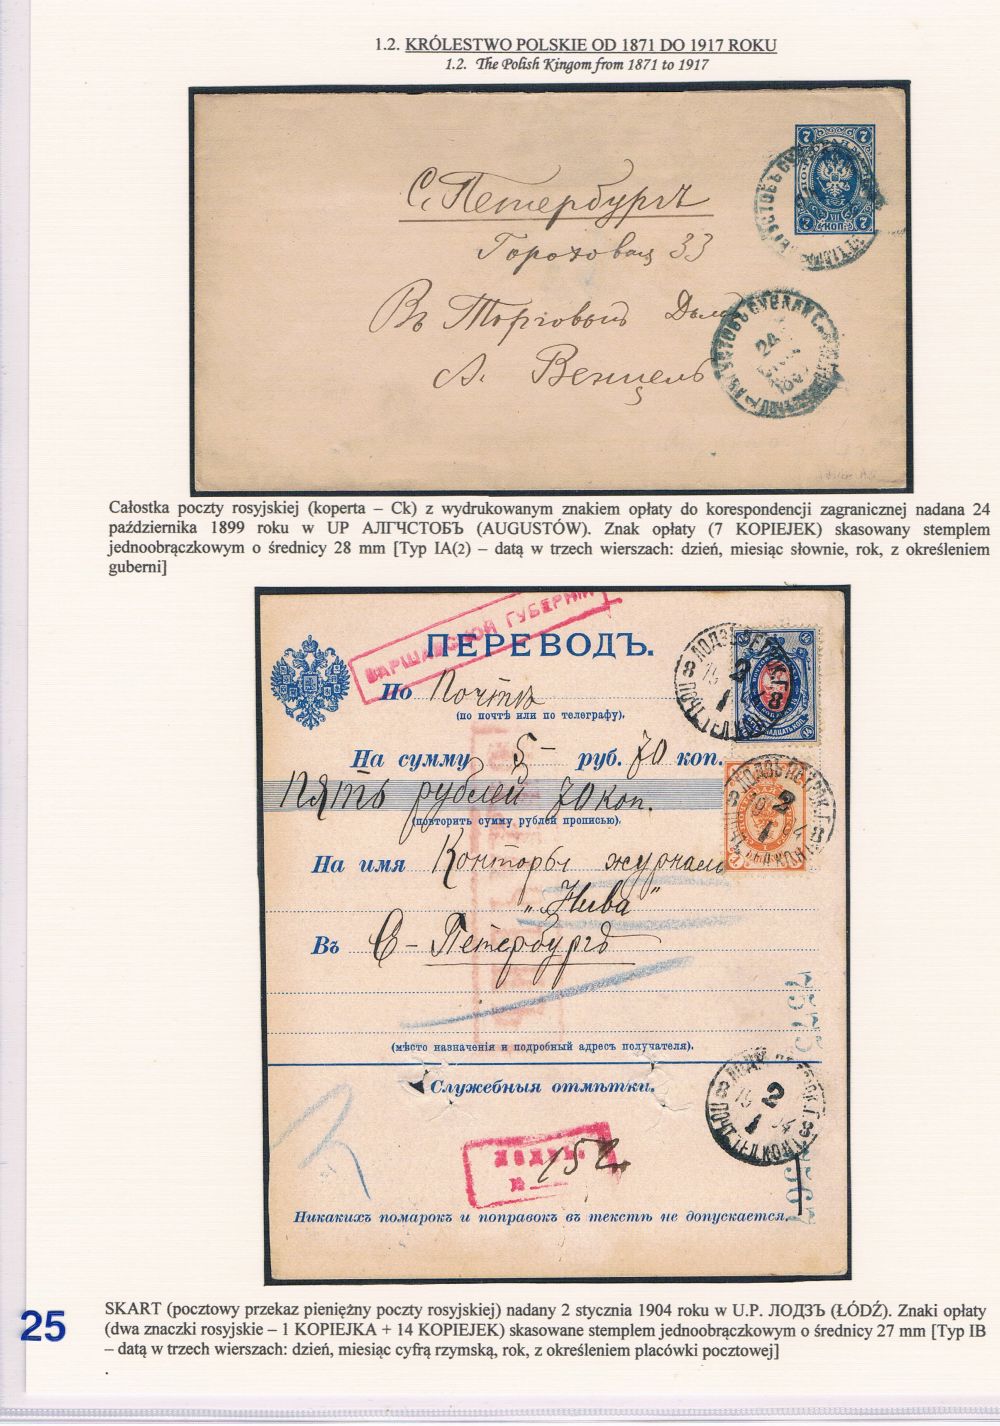 1.2. KRÓLESTWO POLSKIE OD 1871 DO 1917 ROKU
1.2. The Polish Kingom from 1871 to 1917
7 7
7 7
С. Петербургъ
Гороховая 33
Въ Торговый Домъ
А. Венцель
24
Całostka poczty rosyjskiej (koperta – Ck) z wydrukowanym znakiem opłaty do korespondencji zagranicznej nadana 24
października 1899 roku w UP АЛГЧСТОБЪ (AUGUSTÓW). Znak opłaty (7 KOPIEJEK) skasowany stemplem
jednoobrączkowym o średnicy 28 mm [Typ IA(2) – datą w trzech wierszach: dzień, miesiąc słownie, rok, z określeniem
guberni]
ВАРШАВСКОЙ ГУБЕРНІИ
ПЕРЕВОДЪ.
По Почтѣ
(по почтѣ или по телеграфу).
На сумму 5 – руб. 70 коп.
Пять рублей 70 коп.
(повторить сумму рублей прописью).
На имя Конторы журнала
„Нива"
Въ С-Петербургъ
(мѣсто назначенія и подробный адресъ получателя).
Служебныя отмѣтки.
ЛОДЗЬ.
№
Никакихъ помарокъ и поправокъ въ текстѣ не допускается.
25
SKART (pocztowy przekaz pieniężny poczty rosyjskiej) nadany 2 stycznia 1904 roku w U.P. ЛОДЗЪ (ŁÓDŹ). Znaki opłaty
(dwa znaczki rosyjskie – 1 KOPIEJKA + 14 KOPIEJEK) skasowane stemplem jednoobrączkowym o średnicy 27 mm [Typ IB
– datą w trzech wierszach: dzień, miesiąc cyfrą rzymską, rok, z określeniem placówki pocztowej]